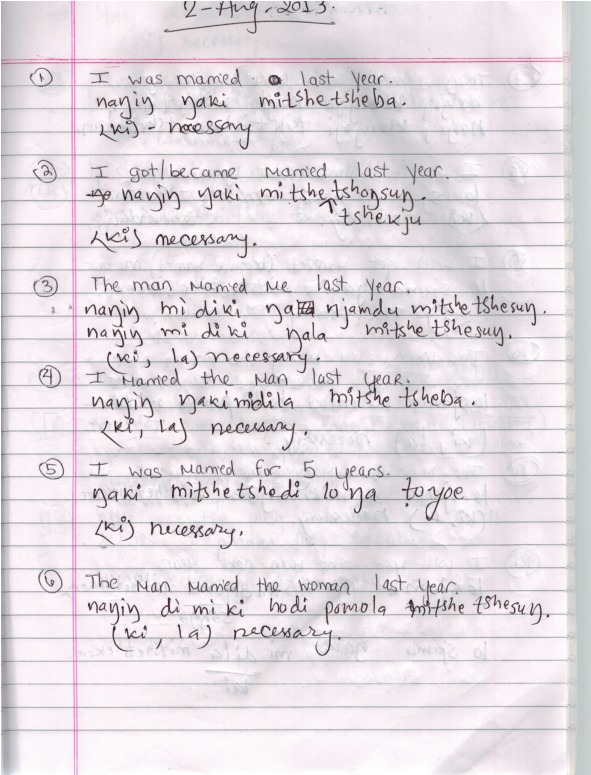 2-Aug-2013.
① I was married last year.
naŋiŋ ŋaki mitshetsheba.
(ki) - necessary
② I got/became married last year.
naŋiŋ ŋaki mitshetshoŋsuŋ.
tshekju
(ki) necessary.
③ The man married me last year.
naŋiŋ mi diki ŋa njamdu mitshetshesuŋ.
naŋiŋ mi diki ŋala mitshetshesuŋ.
(ki, la) necessary.
④ I married the man last year.
naŋiŋ ŋaki midila mitshe tsheba.
(ki, la) necessary.
⑤ I was married for 5 years.
ŋaki mitshetshedi lo ŋa toyoe
(ki) necessary.
⑥ The man married the woman last year.
naŋiŋ di mi ki hodi pomola mitshe tshesuŋ.
(ki, la) necessary.